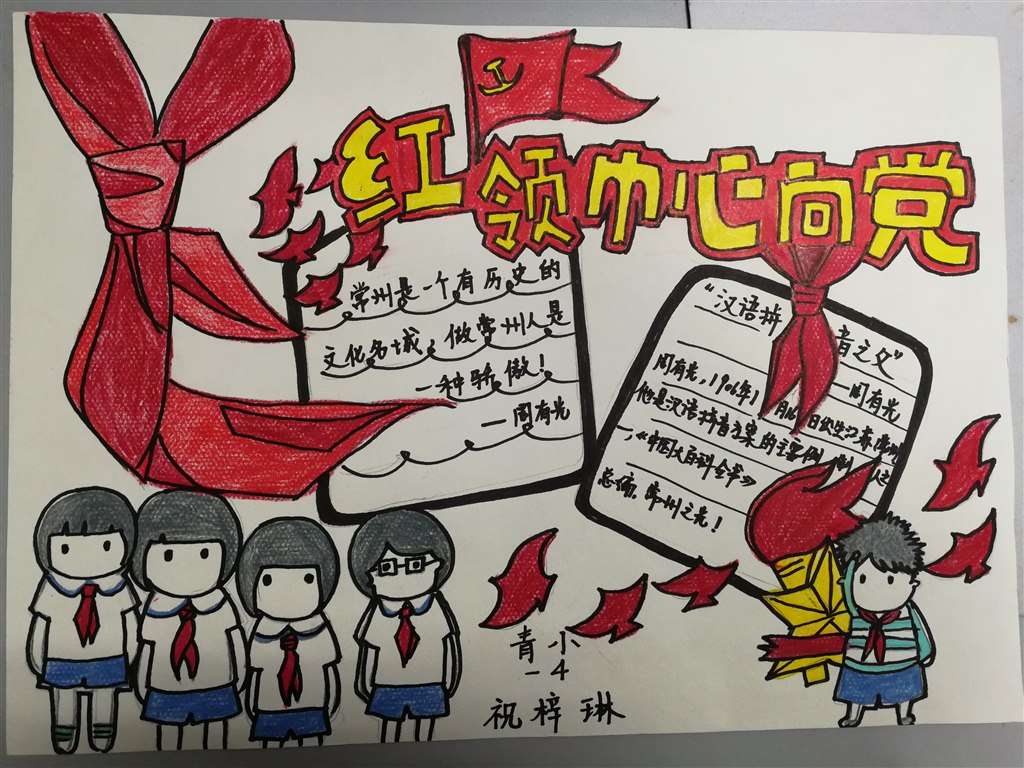 红领巾心向党
常州是一个有历史的
文化名城,做常州人是
一种骄傲!
—周有光
“汉语拼 音之父”
—周有光
周有光,1906年1 月 日 生江苏常州
他是汉语拼音方案的主要 制 人之
一,《中国大百科全书》
总编,常州之光!
青小
一4
祝梓琳